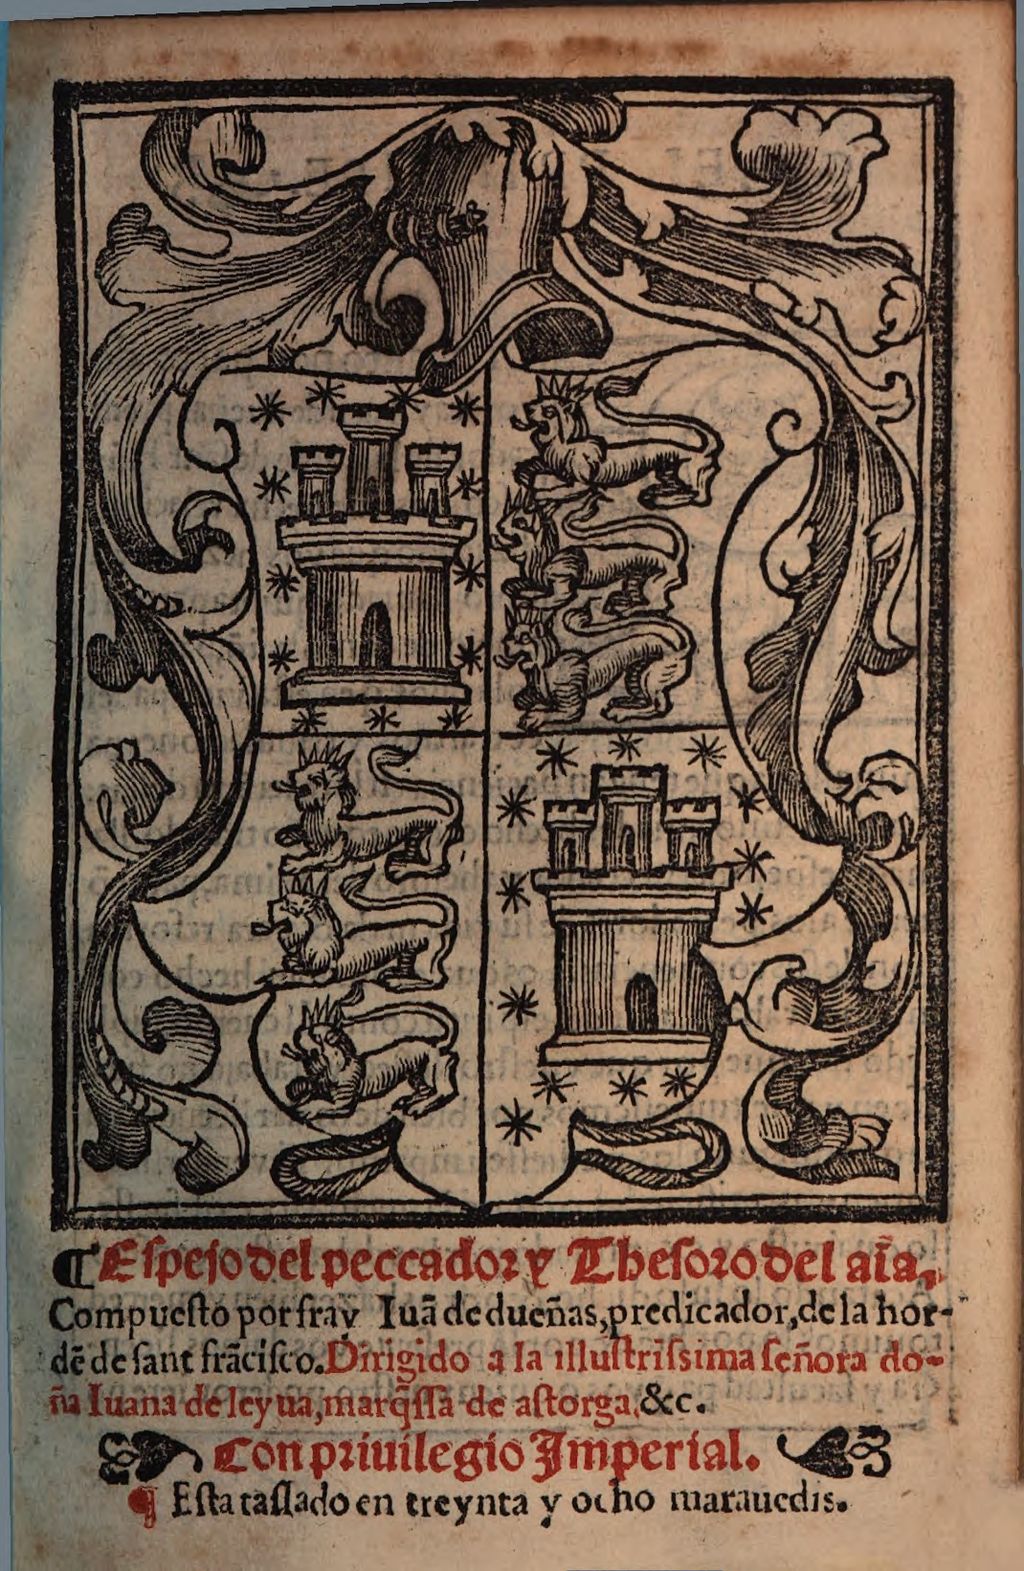 ¶ Espejo del peccador y Thesoro del aĩa,
Compuesto por fray Iuã de dueñas, predicador, de la hor-
dẽ de sant frãcisco. Dirigido a la illustrissima señora do-
ña Iuana de leyua, marq̃ssa de astorga, &c.
Con priuilegio Imperial.
¶ Esta tassado en treynta y ocho marauedis.